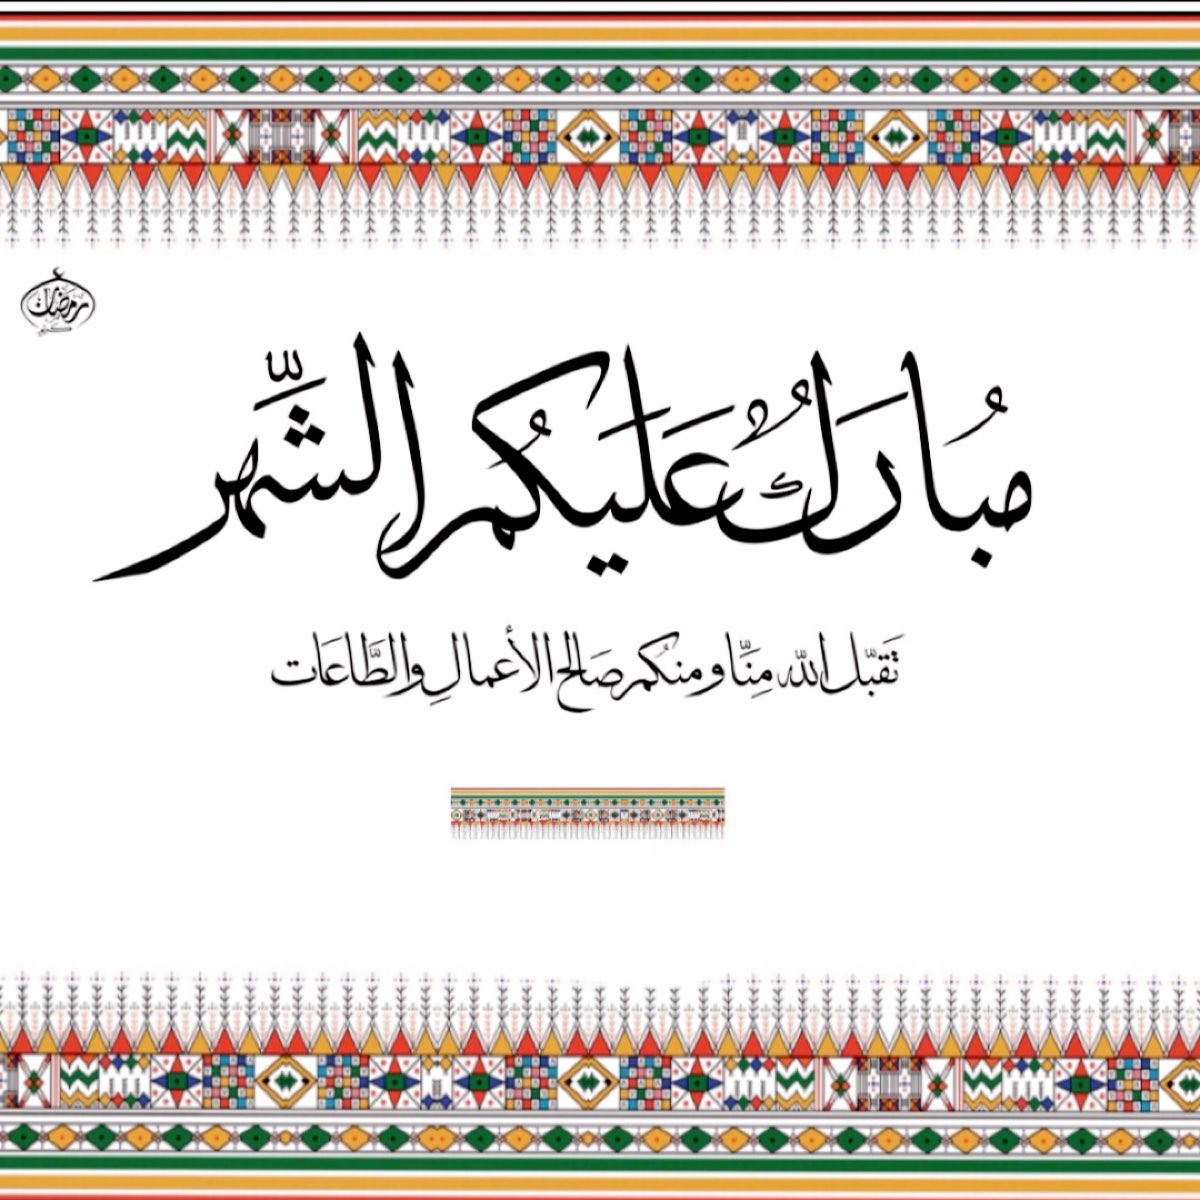 رمضان
كريم
مُبَارَكٌ عَلَيكُم الشَّهر
تَقبّل الله مِنَّا ومنكُم صَالح الأعمالِ والطَّاعَات